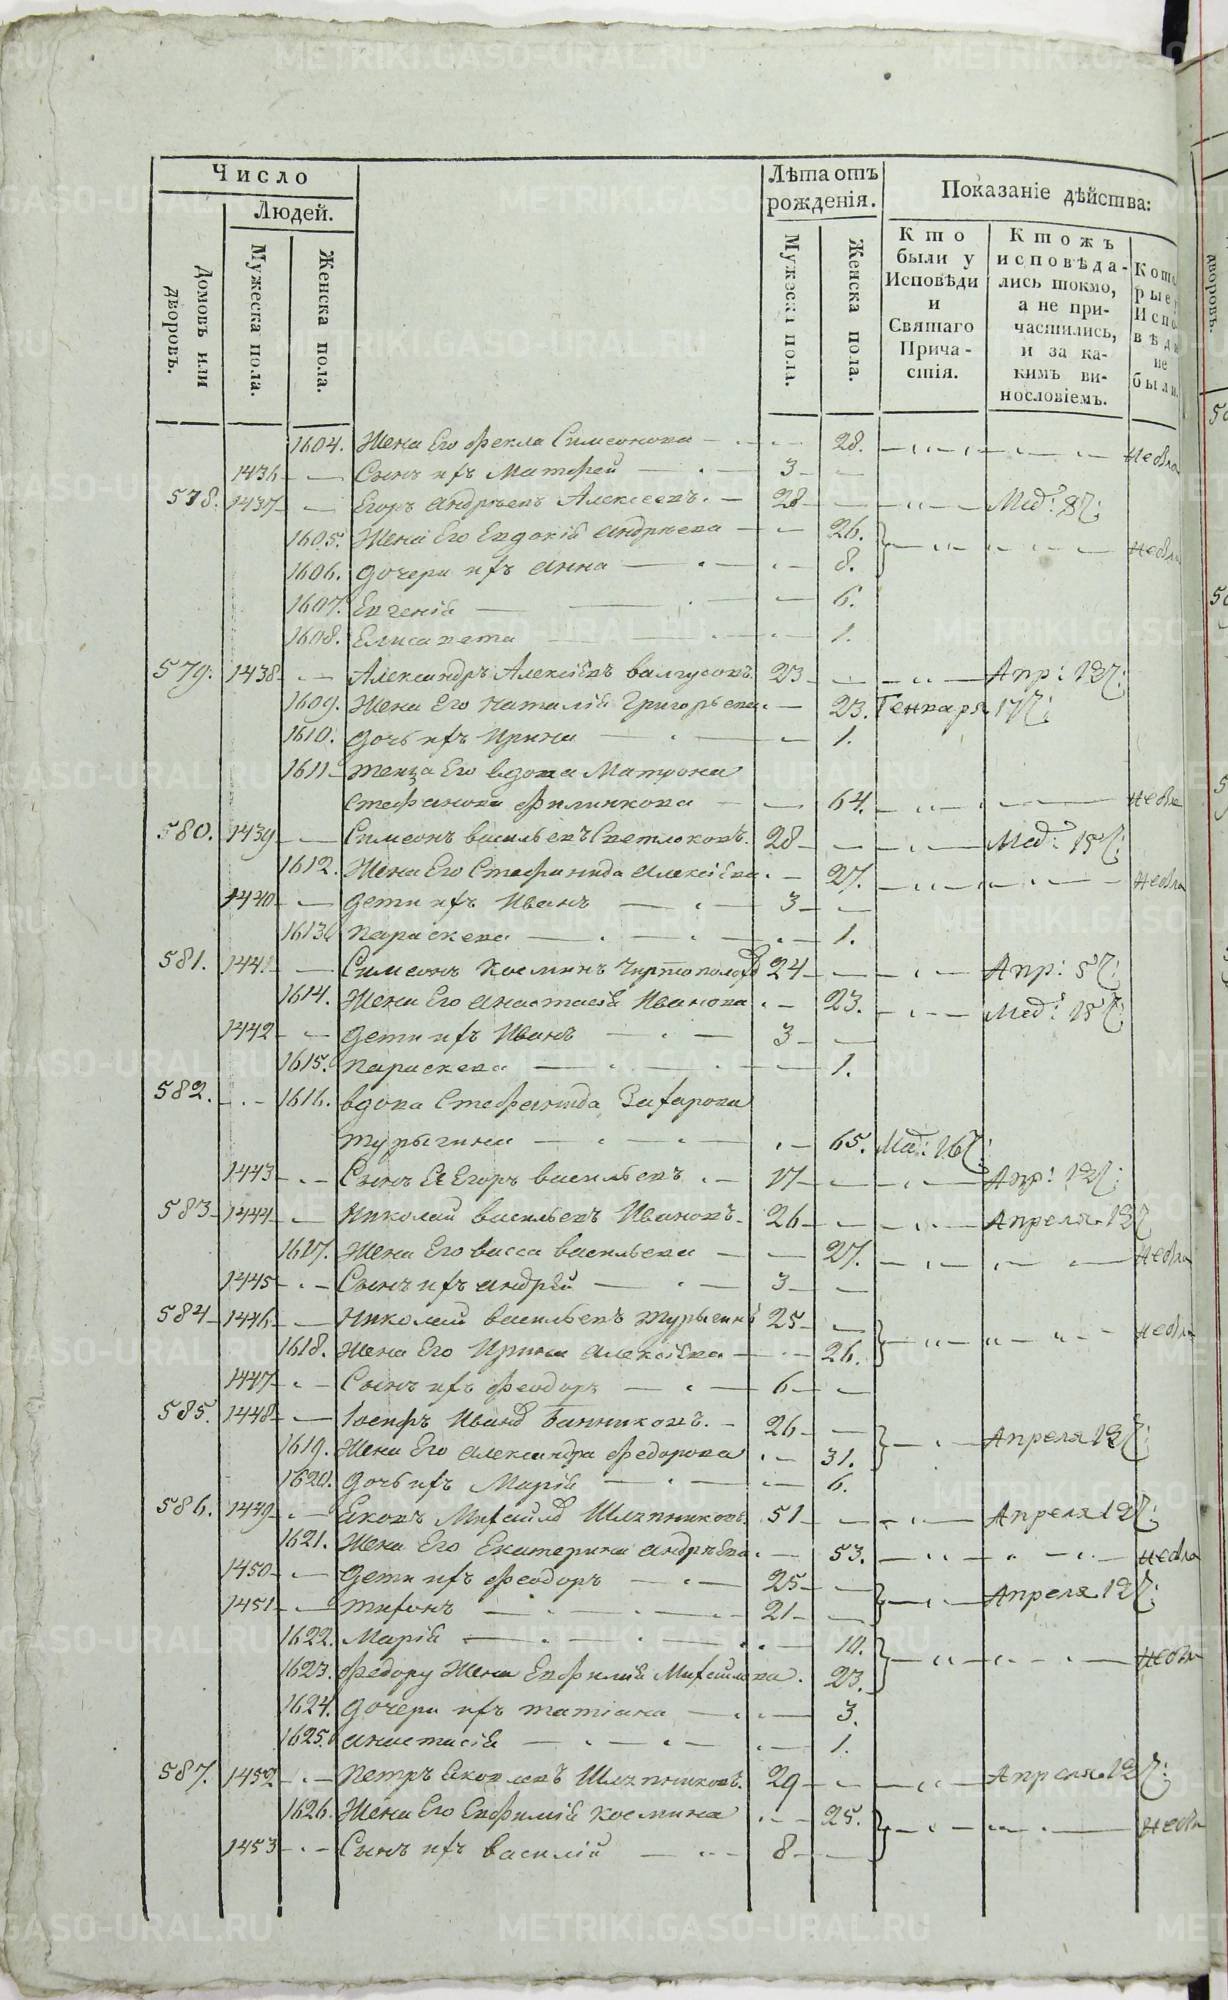 Число
Людей.
Домовъ или дворовъ.
Мужеска пола.
Женска пола.
Лѣта отъ рожденія.
Мужеска пола.
Женска пола.
Показаніе дѣйства:
Кто были у Исповѣди и Святаго Причастія.
Ктожъ исповѣдались токмо, а не причастились, и за какимъ винословіемъ.
Которые Исповѣди не были
1604. Жена Его Фекла Симеонова 28. не была
1436 Сынъ ихъ Матфей 3
578. 1437 Егоръ Андрѣевъ Алексеевъ. 28
1605. Жена Его Евдокія Андрѣева 26.
1606. Дочери ихъ Анна 8.
1607. Евгенія 6.
1608. Елисавета 1.
579. 1438 Александръ Алексіевъ 23 Апр:
1609. Жена Его Наталія Григорьева. 23. Генваря 17
1610. Дочь ихъ Ирина 1.
1611 Теща Его вдова Матрона
Стефанова Филинкова 64.
580. 1439 Симеонъ Васильевъ Светлаковъ. 28
1612. Жена Его Стефанида Алексіева. 27.
1440 Дети ихъ Иванъ 3
1613. Параскева 1.
581. 1441 Симеонъ Косминъ 24 Апр: 5
1614. Жена Его Анастасія Иванова 23.
1442 Дети ихъ Иванъ 3
1615. Параскева 1.
582. 1616. Вдова Стефанида Захарова
Турыгина 65. 16
1443 Сынъ Ея Егоръ Васильевъ 17 Апр:
583 1444 Николай Васильевъ Ивановъ. 26 Апреля
1617. Жена Его Васса Васильева 27.
1445 Сынъ ихъ Андрей 3
584 1446 Николай Васильевъ Турыгинъ 25
1618. Жена Его Ирина Алексіева 26.
1447 Сынъ ихъ Феодоръ 6
585. 1448 Іосифъ Иванов Банниковъ. 26
1619. Жена Его Александра Федорова 31. Апреля
1620. Дочь ихъ Марія 6.
586. 1449 Яковъ Михайлов Шляпниковъ. 51 Апреля
1621. Жена Его Екатерина Андрѣева. 53.
1450 Дети ихъ Феодоръ 25 Апреля
1451 Тихонъ 21
1622. Марія 10.
1623. Федору Жена Евфимія Михайлова. 23.
1624. Дочери ихъ Татіана 3.
1625. Анастасія 1.
587. 1452 Петръ Яковлевъ Шляпниковъ. 29 Апреля
1626. Жена Его Евфимія Космина 25.
1453 Сынъ ихъ Василій 8
METRIKI.GASO-URAL.RU